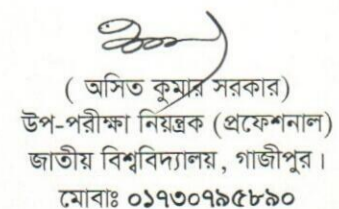 ( অসিত কুমার সরকার)
উপ-পরীক্ষা নিয়ন্ত্রক (প্রফেশনাল)
জাতীয় বিশ্ববিদ্যালয়, গাজীপুর।
মোবাঃ ০১৭৩০৭৯৫৮৯০